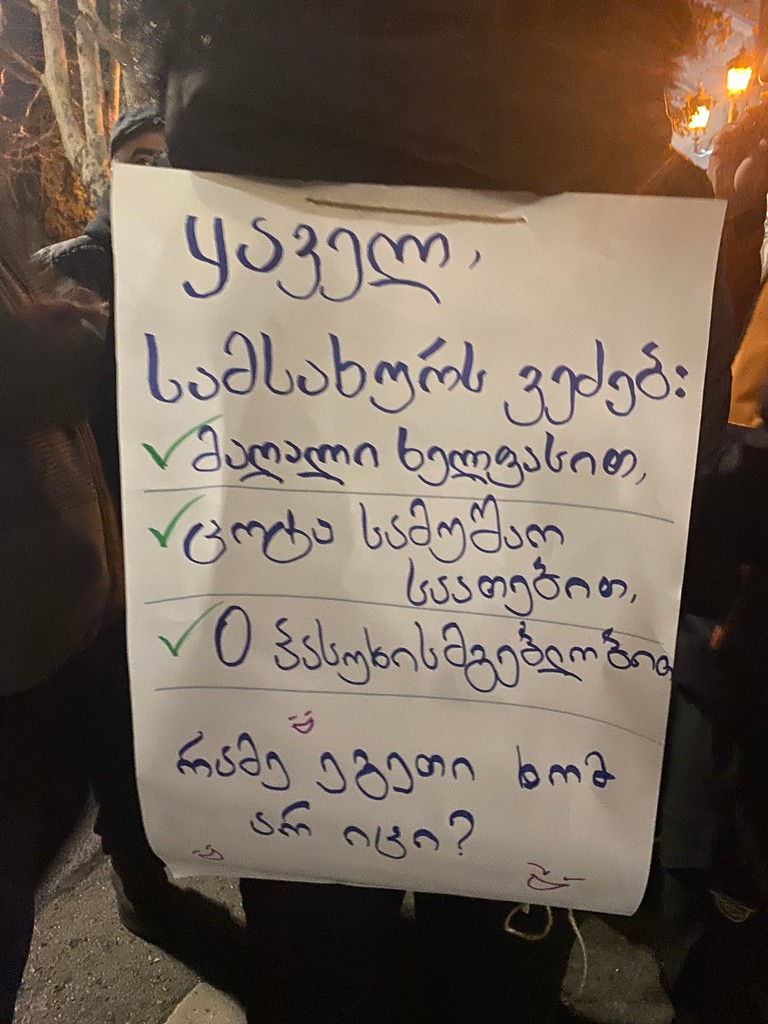 ყაველ,
სამსახურს ვეძებ:
მაღალი ხელფასით,
ცოტა სამუშაო
საათებით,
0 პასუხისმგებლობით
რამე ეგეთი ხომ
არ იცი?